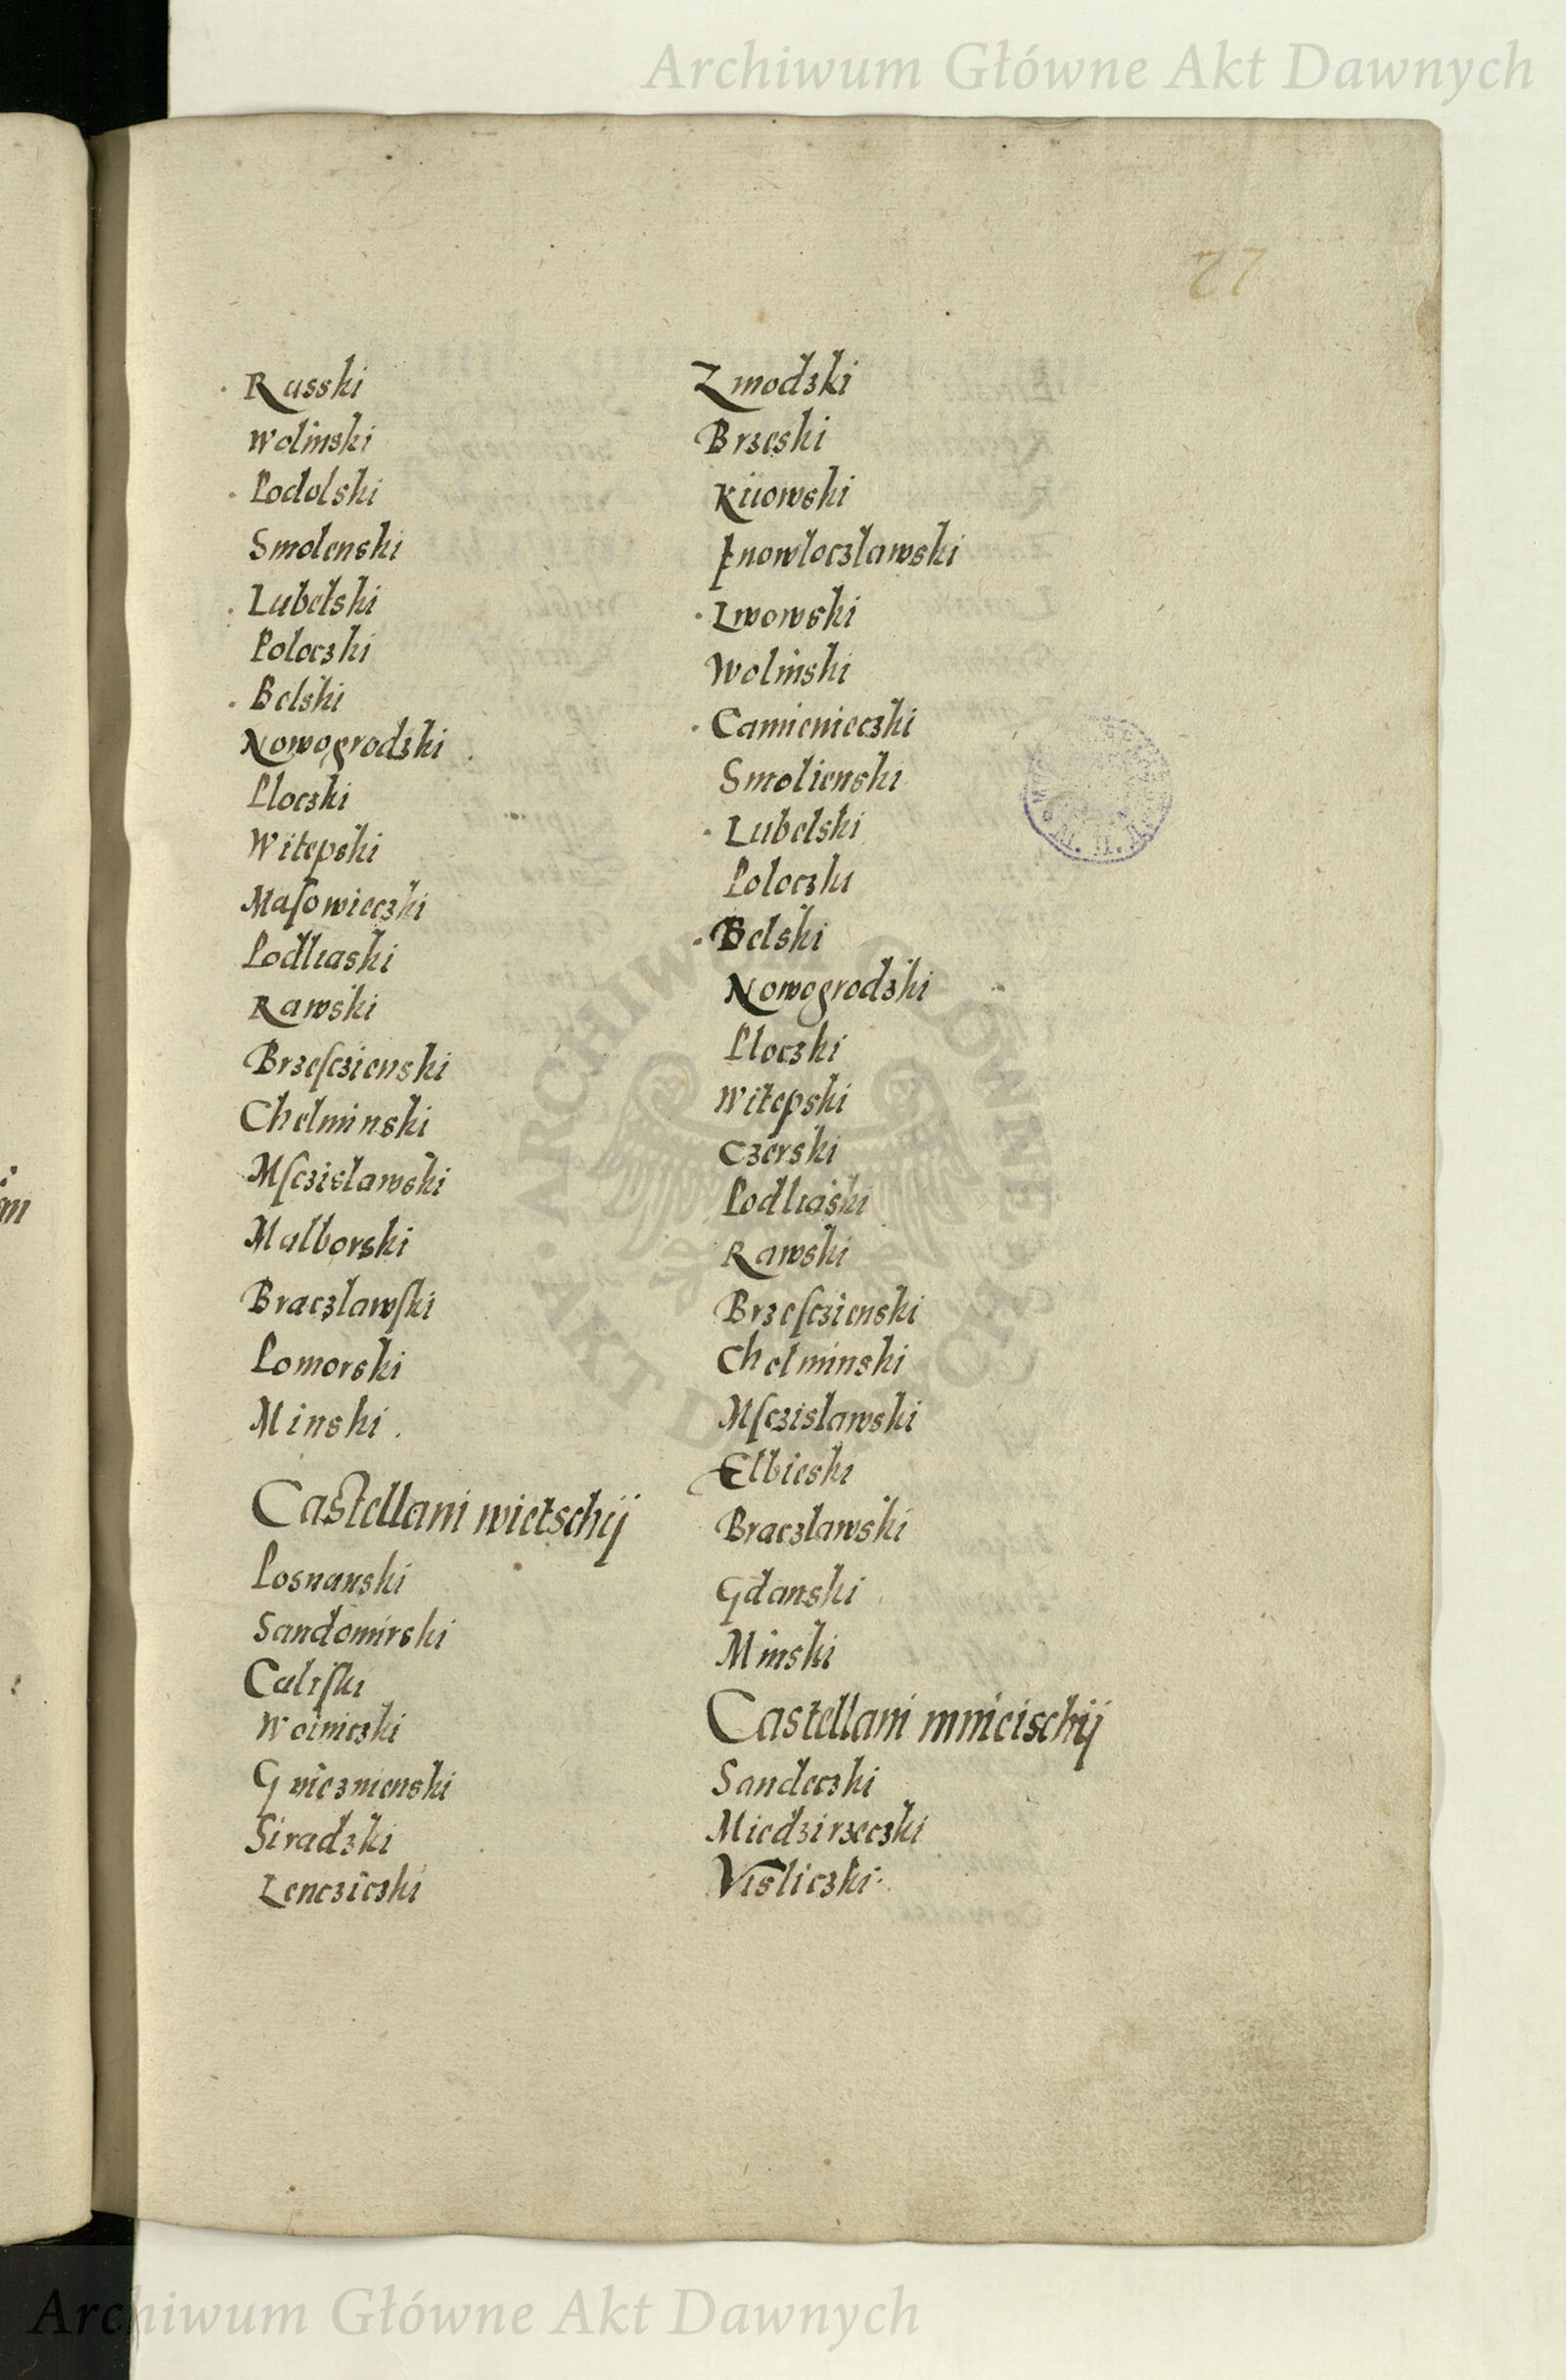 Archiwum Główne Akt Dawnych
27
Russki
Wolinski
Podolski
Smolenski
Lubelski
Poloczki
Belski
Nowogrodzki
Ploczki
Witepski
Maſowieczki
Podliaski
Rawski
Brzeſczienski
Chelminski
Mſczislawski
Malborski
Braczlawſki
Pomorski
Minski.
Castellani wietschij
Posnanski
Sandomirski
Caliſki
Woiniczki
Gnieznienski
Siradzki
Lencziczki
Zmodzki
Brzeski
Kiiowski
Inowloczlawski
Lwowski
Wolinski
Camienieczki
Smolienski
Lubelski
Poloczki
Belski
Nowogrodzki
Ploczki
Witepski
Czerski
Podliaski
Rawski
Brzeſczienski
Chelminski
Mſczislawski
Elbieski
Braczlawski
Gdanski
Minski
Castellani mnieischij
Sandeczki
Miedzirzeczki
Visliczki
ARCHIWUM GŁÓWNE AKT DAWNYCH
Archiwum Główne Akt Dawnych